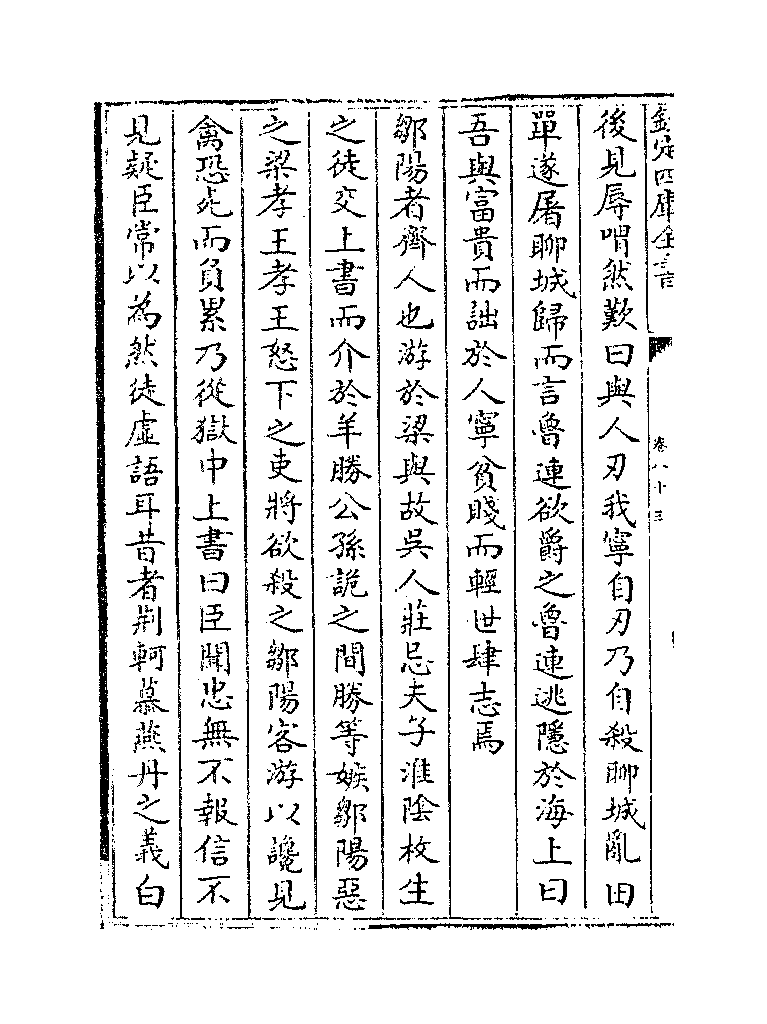 欽定四庫全書
卷八十三
後見辱喟然歎曰與人刃我寧自刃乃自殺聊城亂田
單遂屠聊城歸而言魯連欲爵之魯連逃隱於海上曰
吾與富貴而詘於人寧貧賤而輕世肆志焉
鄒陽者齊人也游於梁與故吳人莊忌夫子淮陰枚生
之徒交上書而介於羊勝公孫詭之間勝等嫉鄒陽惡
之梁孝王孝王怒下之吏將欲殺之鄒陽客游以讒見
禽恐死而負累乃從獄中上書曰臣聞忠無不報信不
見疑臣常以為然徒虛語耳昔者荆軻慕燕丹之義白